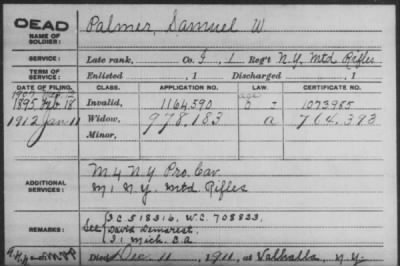 DEAD
NAME OF SOLDIER: Palmer, Samuel W
SERVICE: Late rank, Co. I, 1 Reg't N.Y. Mtd Rifles
TERM OF SERVICE: Enlisted , 1 Discharged , 1
DATE OF FILING. CLASS. APPLICATION NO. LAW. CERTIFICATE NO.
1895 Feb 18 Invalid, 1164590 1073985
1912 Jan 11 Widow, 978,183 a 764,393
Minor,
ADDITIONAL SERVICES: M 4 N Y Pro. Cav.
M 1 N.Y. Mtd Rifles
REMARKS: See S C 518316. W.C. 708823.
David Demarest.
Mich. S A
Died Dec. 11, 1911, at Valhalla, N.Y.